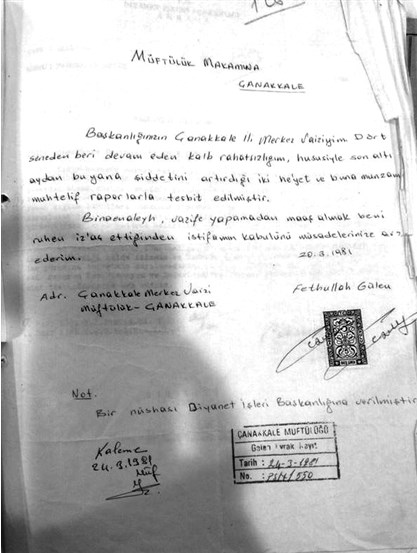 MÜFTÜLÜK MAKAMINA
ÇANAKKALE
Başkanlığınızın Çanakkale İli Merkez Vaiziyim. Dört
seneden beri devam eden kalb rahatsızlığım, hususiyle son altı
aydan bu yana şiddetini artırdığı iki hey'et ve buna munzam
muhtelif raporlarla tesbit edilmiştir.
Binaenaleyh, vazife yapamadan maaş almak beni
ruhen iz'aç ettiğinden istifamın kabulünü müsadelerinize arz
ederim.
20.3.1981
Adr. Çanakkale Merkez Vaizi
Müftülük-ÇANAKKALE
Fethullah Gülen
Not.
Bir nüshası Diyanet İşleri Başkanlığına verilmiştir
Kaleme
24.3.1981
Müf
ÇANAKKALE MÜFTÜLÜĞÜ
Gelen Evrak Kayıt
Tarih : 24-3-1981
No. :